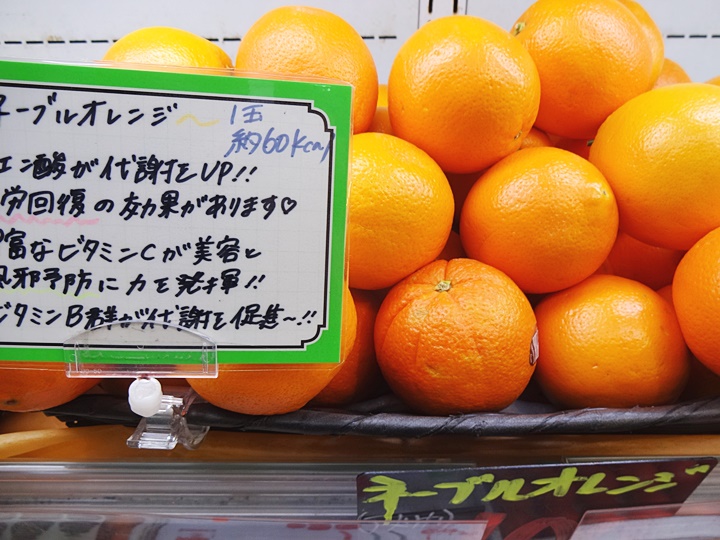 ネーブルオレンジ〜 1玉
約60Kcal
エン酸が代謝をUP!!
労回復の効果があります♡
豊富なビタミンCが美容と
風邪予防に力を発揮!!
ビタミンB群が代謝を促進〜!!
ネーブルオレンジ